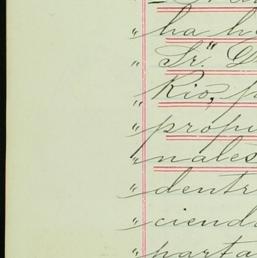 " ha h
" Sr." D
" Rio, p
" propi
" nales
" dentr
" ciend
" parta